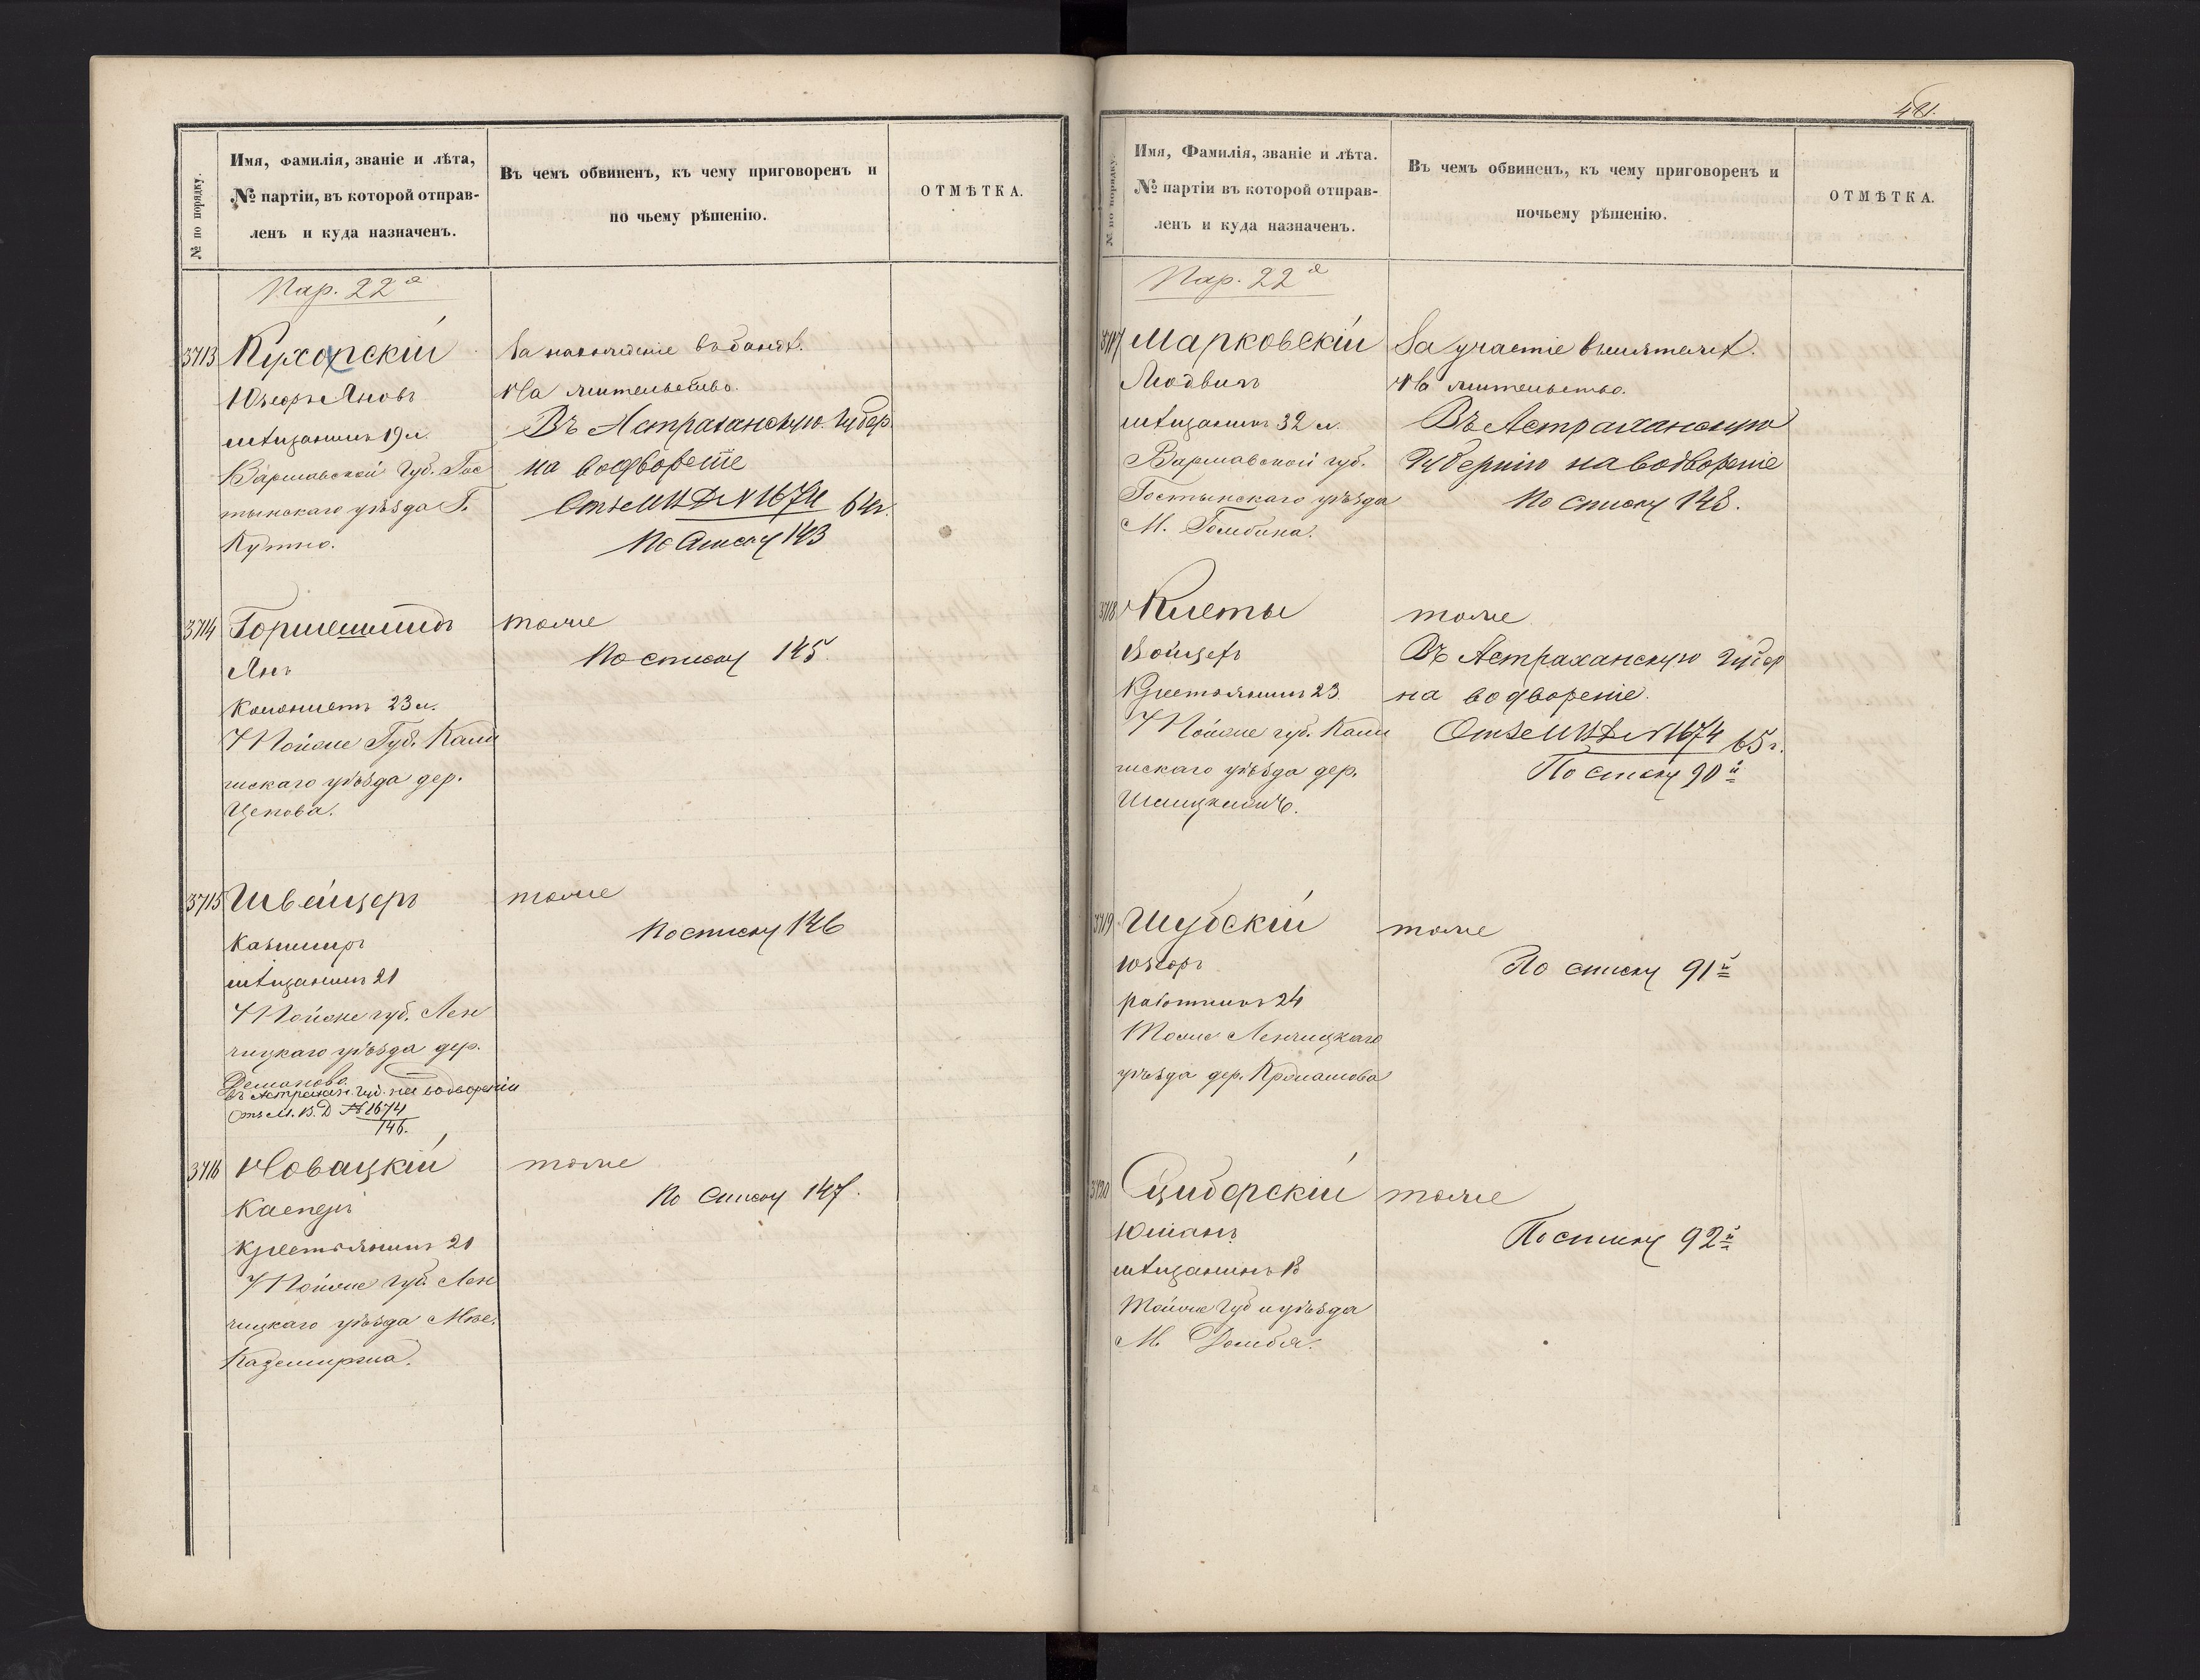 № по порядку.
Имя, фамилія, званіе и лѣта,
№ партіи, въ которой отправ-
ленъ и куда назначенъ.
Въ чемъ обвиненъ, къ чему приговоренъ и
по чьему рѣшенію.
ОТМѢТКА.
Пар. 22я
3713
Кухорскій
Юзефъ Яновъ
шляхтичъ 19 л.
Варшавской Губ. Гос
тынскаго уѣзда Г.
Кутно.
За нахожденіе въ бандѣ.
На жительство.
Въ Астраханскую Губер.
на водвореніе
Отн. М В Д N 1674 64 г.
По списку 143
3714
Янъ
Колонистъ 23 л.
Тойже Губ. Кали
шскаго уѣзда дер.
Цепова.
тоже
По списку 145.
3715
Швейцеръ
Казимиръ
мѣщанинъ 21
Тойже губ. Лен
чицкаго уѣзда дер.
въ Астрахан. губ. на водвореніи
Отн. М. В. Д № 1674
146.
тоже
По списку 146
3716
Новацкій
Касперъ
Крестьянинъ 21
Тойже Губ. Лен
чицкаго уѣзда Мѣс.
Казимиржа.
тоже
По списку 147.
481.
№ по порядку.
Имя, Фамилія, званіе и лѣта.
№ партіи въ которой отправ-
ленъ и куда назначенъ.
Въ чемъ обвиненъ, къ чему приговоренъ и
почьему рѣшенію.
ОТМѢТКА.
Пар. 22я
3717
Марковскій
Людвигъ
мѣщанинъ 32 л.
Варшавской губ.
Гостынскаго уѣзда
М. Гомбина.
За участіе въ мятежѣ.
На жительство.
Въ Астраханскую
Губернію на водвореніе
По списку 148.
3718
Войцехъ
Крестьянинъ 23
Тойже губ. Кали
шскаго уѣзда дер.
тоже
Въ Астраханскую Губер
на водвореніе.
Отн. М В Д N 1674 65 г.
По списку 90й
3719
Шубскій
Юзефъ
работникъ 24
Тоже Ленчицкаго
уѣзда дер.
тоже
По списку 91й
3720
Циборскій
Юліанъ
мѣщанинъ 18
Тойже Губ и уѣзда
М. Домбя.
тоже
По списку 92й